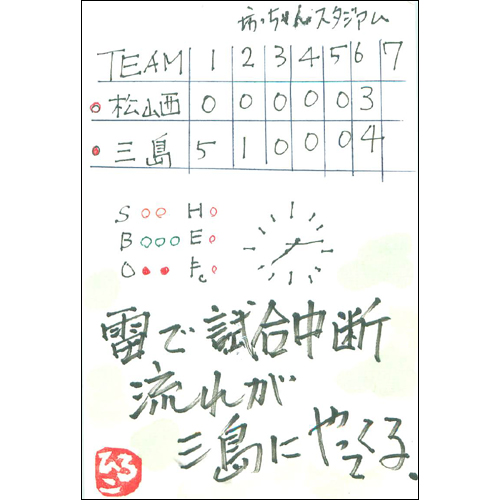 坊っちゃんスタジアム
TEAM 1 2 3 4 5 6 7
松山西 0 0 0 0 0 3
三島 5 1 0 0 0 4
S H
B E
O Fc
雷で試合中断
流れが
三島にやってくる.
ひろこ